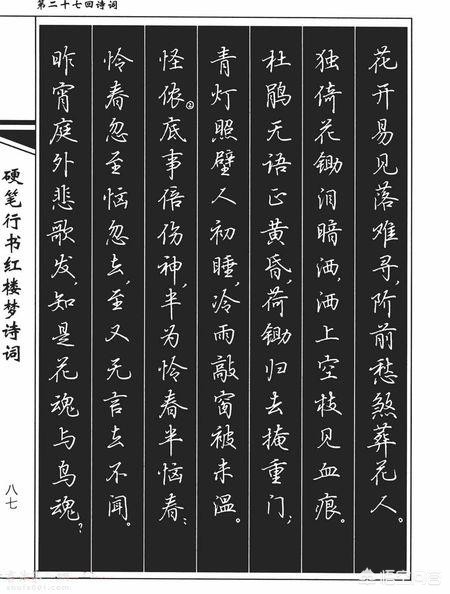 第二十七回诗词
花开易见落难寻,阶前愁煞葬花人。
独倚花锄泪暗洒,洒上空枝见血痕。
杜鹃无语正黄昏,荷锄归去掩重门;
青灯照壁人初睡,冷雨敲窗被未温。
怪侬底事倍伤神,半为怜春半恼春;
怜春忽至恼忽去,至又无言去不闻。
昨宵庭外悲歌发,知是花魂与鸟魂?
硬笔行书红楼梦诗词
八七
悟空问答